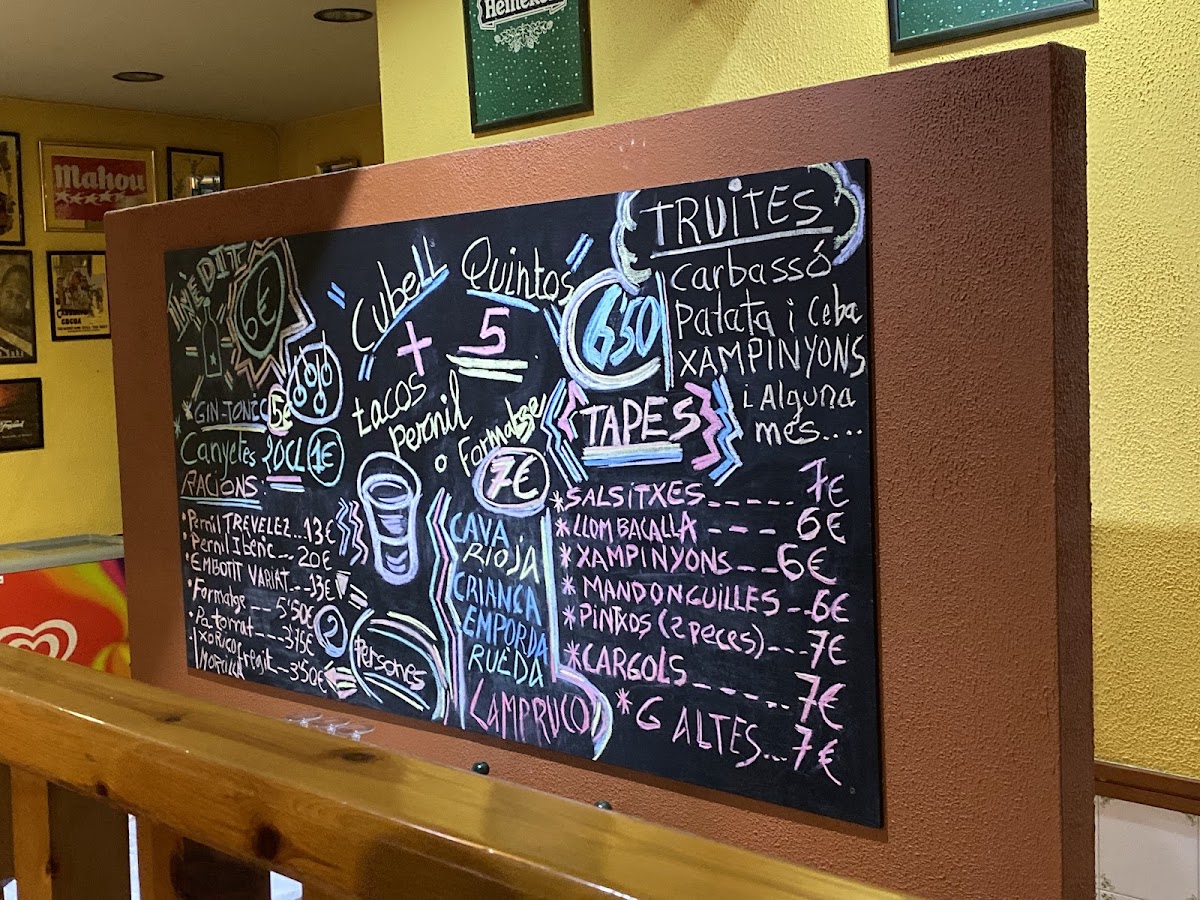 Heineken
Mahou
INÈDIT
6€
GIN-TONIC 5€
Canyetes 20CL 1€
RACIONS:
• Pernil TREVELEZ...13€
• Pernil IBÈRIC... 20€
• EMBOTIT VARIAT...13€
• Formatge --- 5'50€
• Pa tomat --- 3'75€
XORICO fregit --- 3'50€
MORCILLA
2 Persones
Cubell Quintos
+ 5
650
tacos
pernil
o Formatge
7€
CAVA
RIOJA
CRIANÇA
EMPORDA
RUEDA
LAMPRUCO
TRUITES
Carbassó
Patata i Ceba
XAMPINYONS
i Alguna
més....
TAPES
*SALSITXES ----- 7€
*LLOM BACALLA --- 6€
*XAMPINYONS -- 6€
*MANDONGUILLES -- 6€
*PINTXOS (2 peces) --- 7€
*CARGOLS ---- 7€
*GALTES... 7€